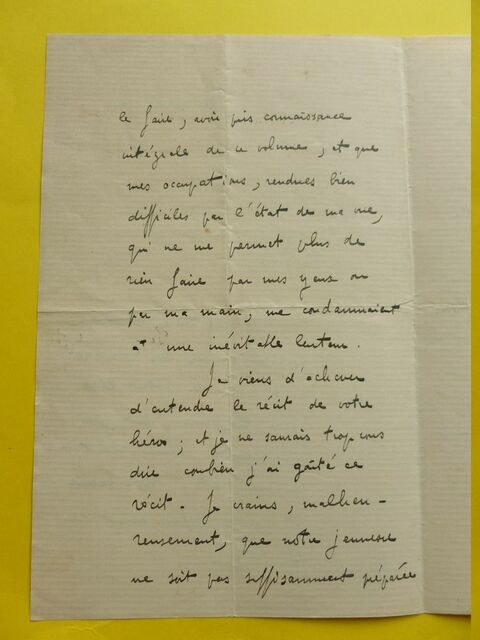 le faire, avoir pris connaissance
intégrale de ce volume, et que
mes occupations, rendues bien
difficiles par l'état de ma vue,
qui ne me permet plus de
rien faire par mes yeux ou
par ma main, me condamnaient
à une inévitable lenteur.
Je viens d'achever
d'entendre le récit de votre
héros ; et je ne saurais trop vous
dire combien j'ai goûté ce
récit. Je crains, malheu-
reusement, que notre jeunesse
ne soit pas suffisamment préparée